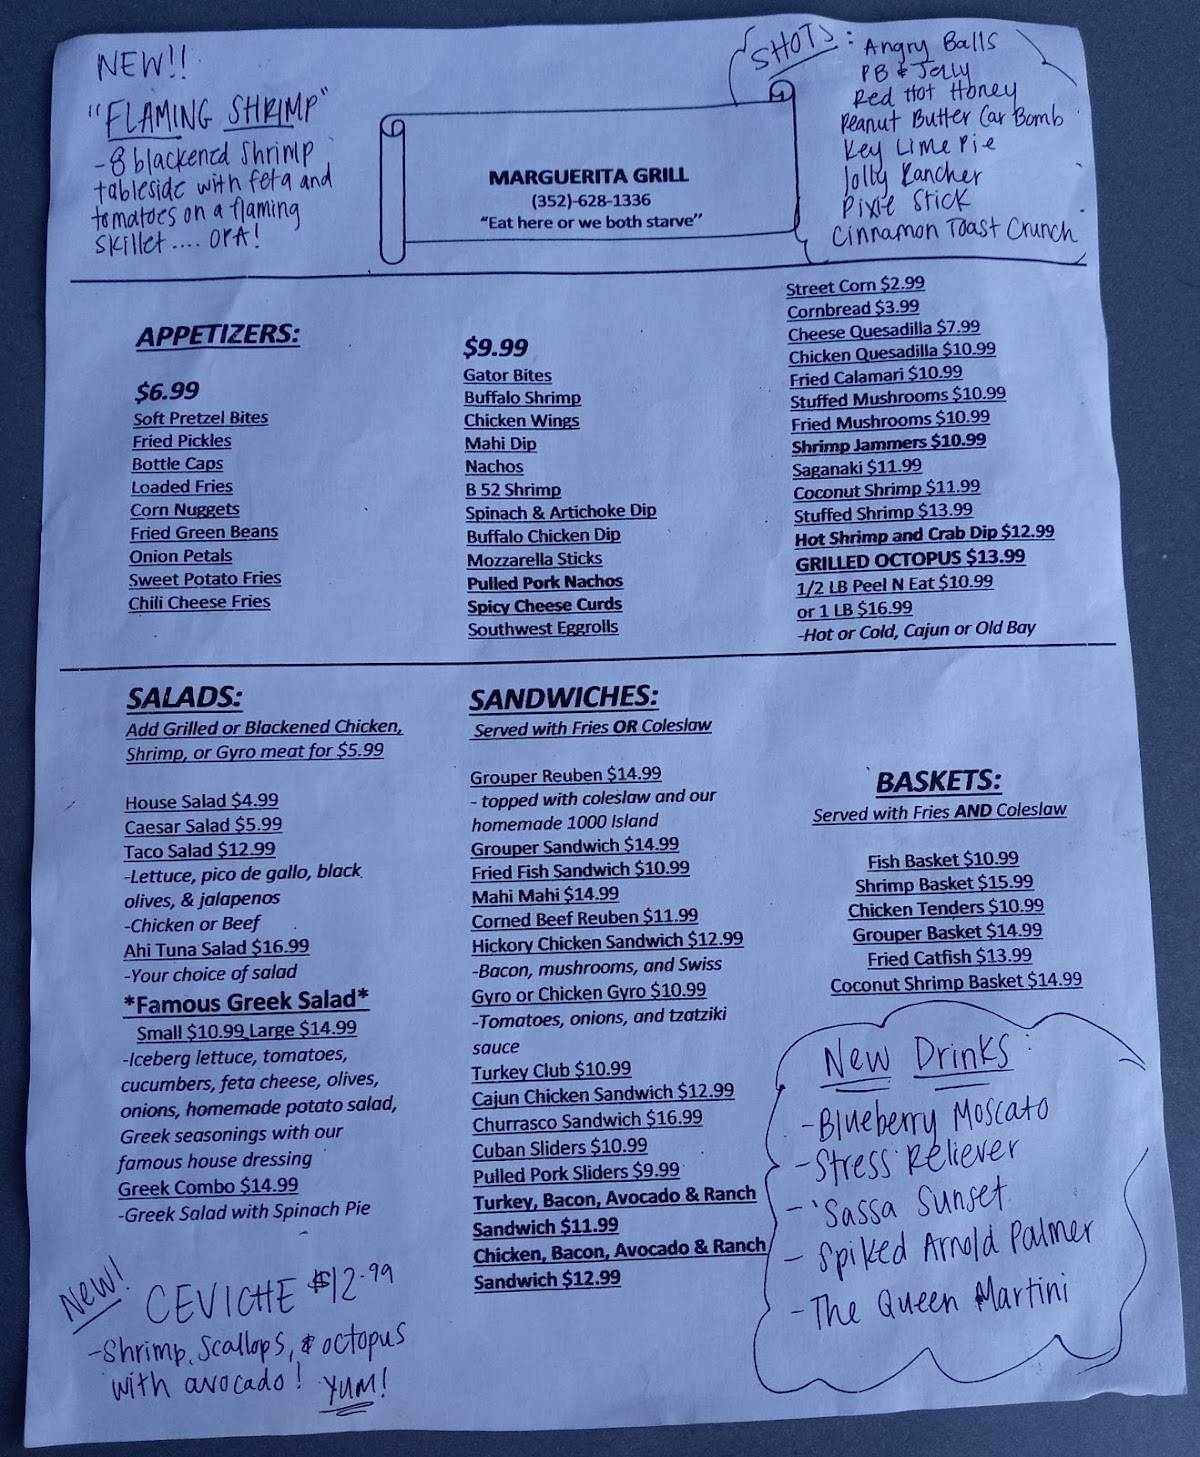 NEW!!
"FLAMING SHRIMP"
-8 blackened shrimp
tableside with feta and
tomatoes on a flaming
skillet.... OPA!
MARGUERITA GRILL
(352)-628-1336
"Eat here or we both starve"
SHOTS: Angry Balls
PB & Jelly
Red Hot Honey
Peanut Butter Car Bomb
Key Lime Pie
Jolly Rancher
Pixie Stick
Cinnamon Toast Crunch
APPETIZERS:
$6.99
Soft Pretzel Bites
Fried Pickles
Bottle Caps
Loaded Fries
Corn Nuggets
Fried Green Beans
Onion Petals
Sweet Potato Fries
Chili Cheese Fries
$9.99
Gator Bites
Buffalo Shrimp
Chicken Wings
Mahi Dip
Nachos
B 52 Shrimp
Spinach & Artichoke Dip
Buffalo Chicken Dip
Mozzarella Sticks
Pulled Pork Nachos
Spicy Cheese Curds
Southwest Eggrolls
Street Corn $2.99
Cornbread $3.99
Cheese Quesadilla $7.99
Chicken Quesadilla $10.99
Fried Calamari $10.99
Stuffed Mushrooms $10.99
Fried Mushrooms $10.99
Shrimp Jammers $10.99
Saganaki $11.99
Coconut Shrimp $11.99
Stuffed Shrimp $13.99
Hot Shrimp and Crab Dip $12.99
GRILLED OCTOPUS $13.99
1/2 LB Peel N Eat $10.99
or 1 LB $16.99
-Hot or Cold, Cajun or Old Bay
SALADS:
Add Grilled or Blackened Chicken,
Shrimp, or Gyro meat for $5.99
House Salad $4.99
Caesar Salad $5.99
Taco Salad $12.99
-Lettuce, pico de gallo, black
olives, & jalapenos
-Chicken or Beef
Ahi Tuna Salad $16.99
-Your choice of salad
*Famous Greek Salad*
Small $10.99 Large $14.99
-Iceberg lettuce, tomatoes,
cucumbers, feta cheese, olives,
onions, homemade potato salad,
Greek seasonings with our
famous house dressing
Greek Combo $14.99
-Greek Salad with Spinach Pie
New! CEVICHE $12.99
-Shrimp, Scallops, & octopus
with avocado! YUM!
SANDWICHES:
Served with Fries OR Coleslaw
Grouper Reuben $14.99
- topped with coleslaw and our
homemade 1000 Island
Grouper Sandwich $14.99
Fried Fish Sandwich $10.99
Mahi Mahi $14.99
Corned Beef Reuben $11.99
Hickory Chicken Sandwich $12.99
-Bacon, mushrooms, and Swiss
Gyro or Chicken Gyro $10.99
-Tomatoes, onions, and tzatziki
sauce
Turkey Club $10.99
Cajun Chicken Sandwich $12.99
Churrasco Sandwich $16.99
Cuban Sliders $10.99
Pulled Pork Sliders $9.99
Turkey, Bacon, Avocado & Ranch
Sandwich $11.99
Chicken, Bacon, Avocado & Ranch
Sandwich $12.99
BASKETS:
Served with Fries AND Coleslaw
Fish Basket $10.99
Shrimp Basket $15.99
Chicken Tenders $10.99
Grouper Basket $14.99
Fried Catfish $13.99
Coconut Shrimp Basket $14.99
New Drinks:
-Blueberry Moscato
-Stress Reliever
-'Sassa Sunset
- Spiked Arnold Palmer
-The Queen Martini